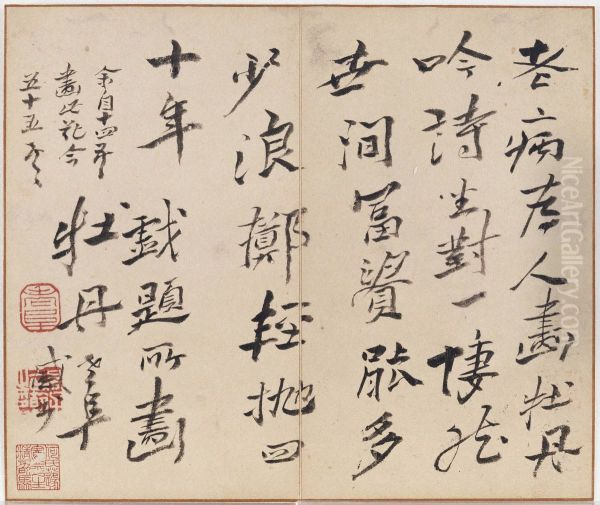 老病為人畫牡丹
吟詩坐對一悽然
世間冨貴能多
少浪擲輕拋四
十年 戲題所畫
牡丹 老阜
余自十四歲
畫此花今
五十五歲
NiceArtGallery.com